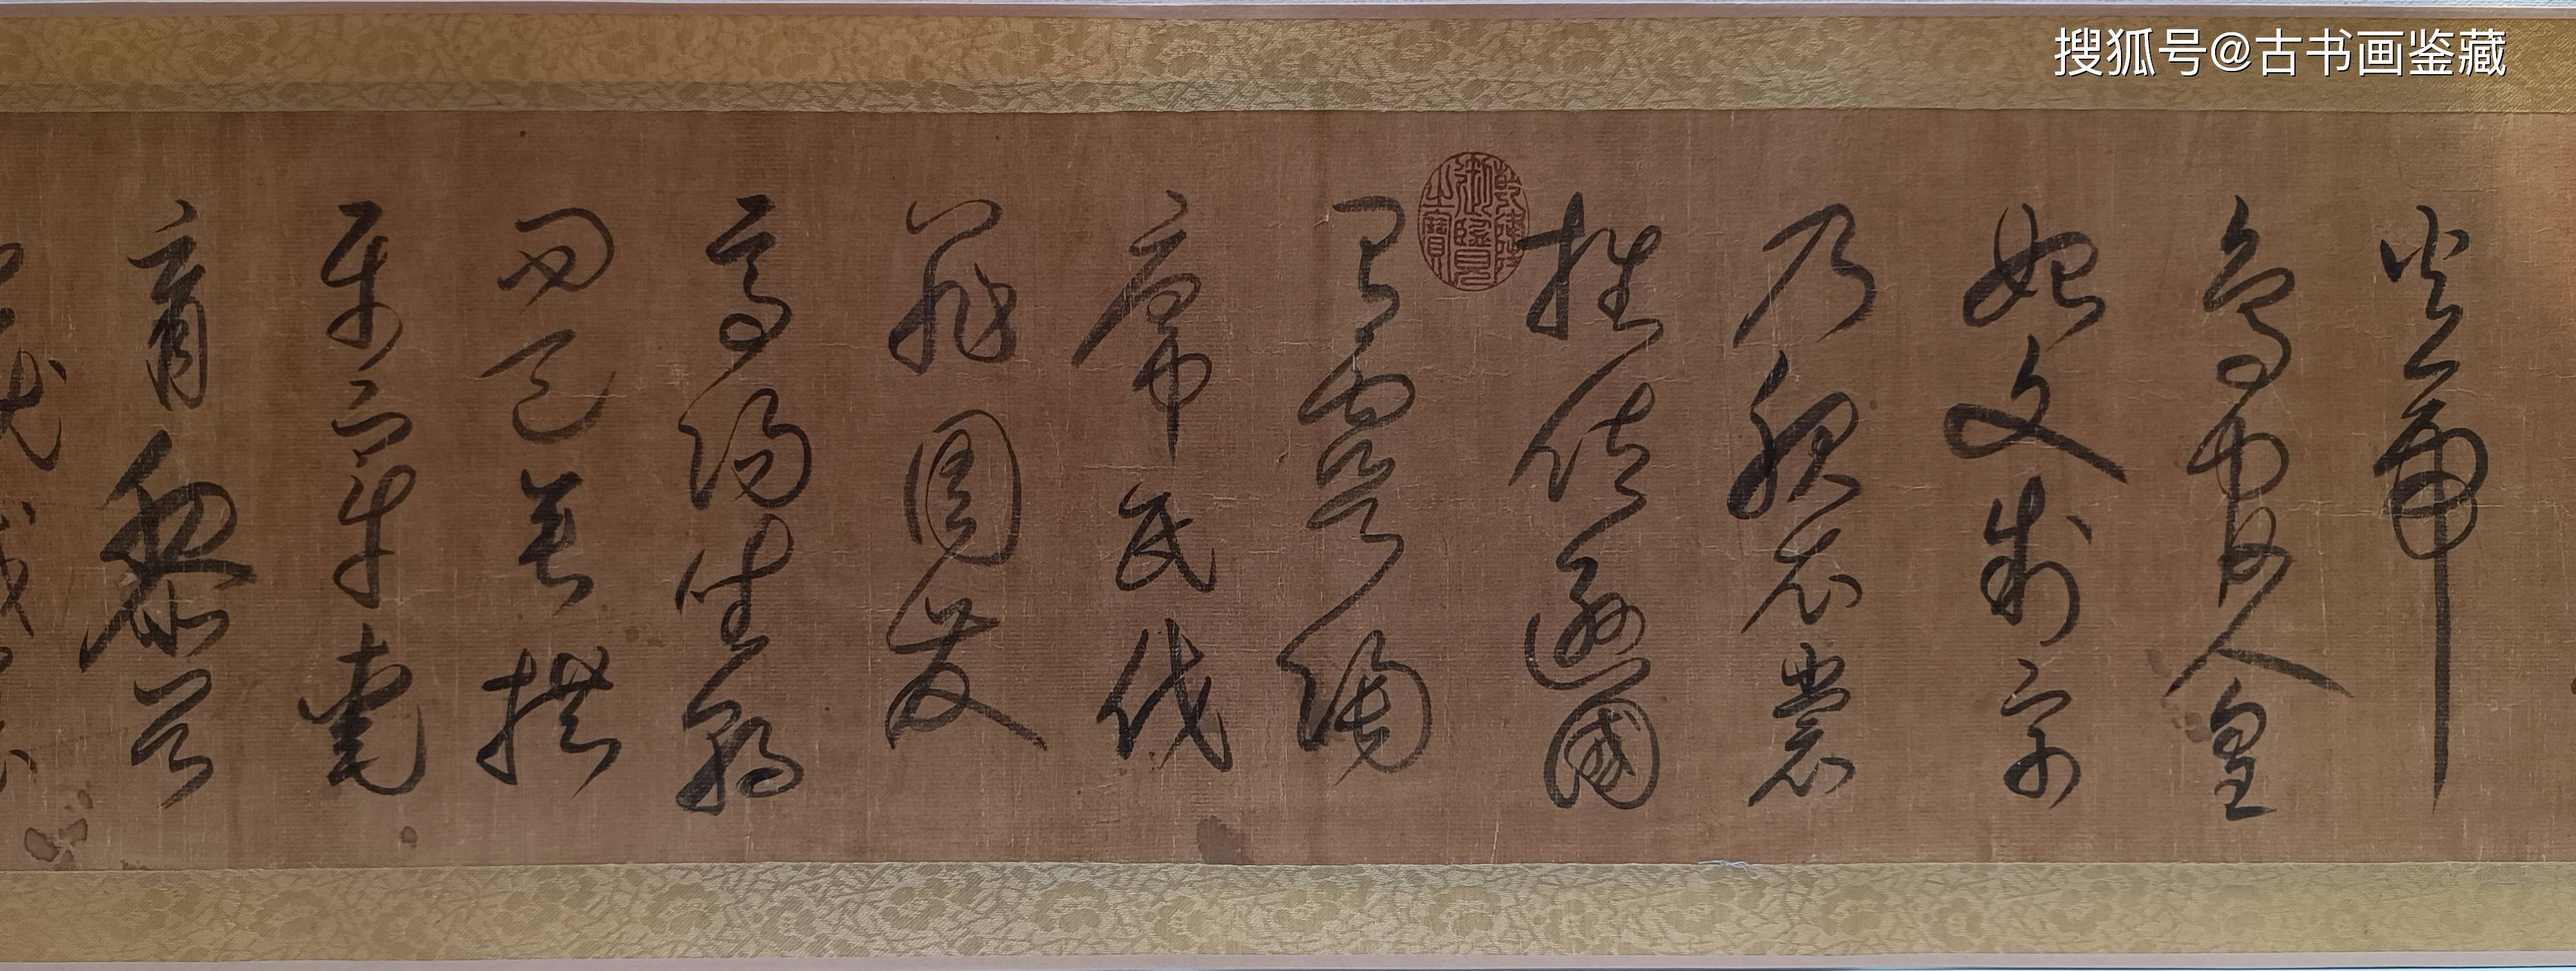 搜狐号@古书画鉴藏
火帝
鸟官人皇
始文制字
乃服衣裳
推位逊國
有虞陶
唐吊民伐
罪周發
商湯坐朝
问道垂拱
平章愛
育黎首
乾隆御覽之寶